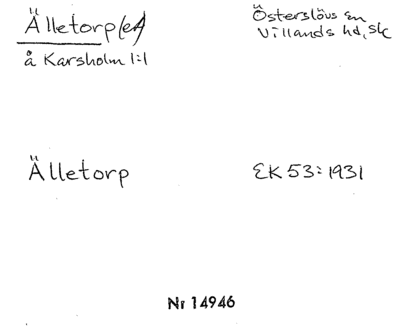 Älletorp(et)
Österslövs sn
Villands hd, Sk
å Karsholm 1:1
Älletorp
EK 53:1931
Nr 14946